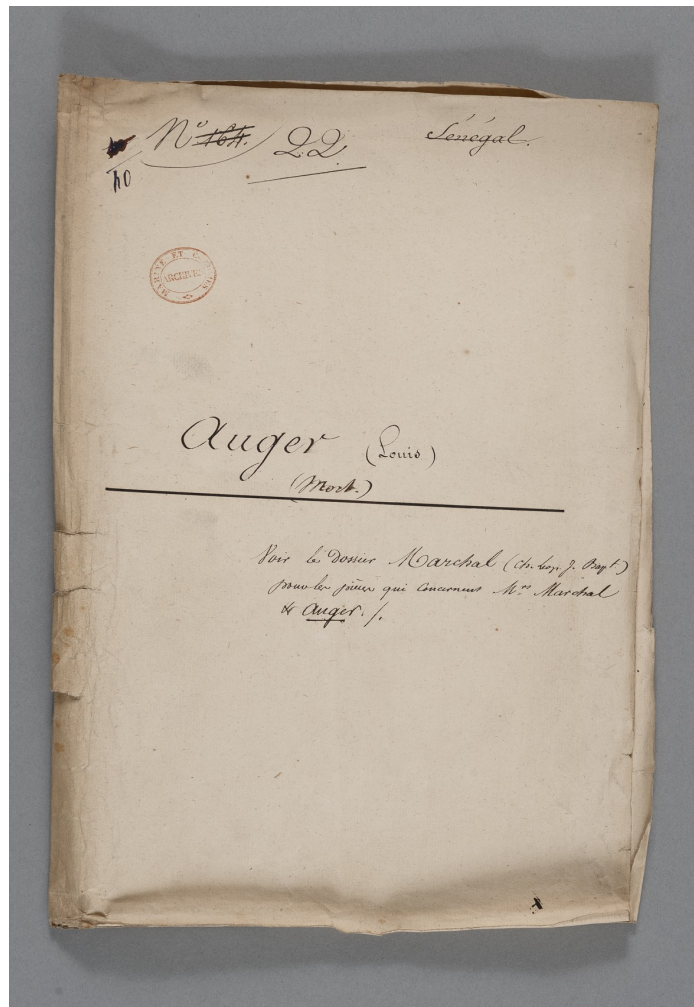 Nº 164. 22. Sénégal.
40
MARINE ET COLONIES
ARCHIVES
Auger (Louis)
(Mort.)
Voir le Dossier Marchal (Ch. Léop. J. Bapt.)
pour les pièces qui concernent Mrs Marchal
& Auger ./.